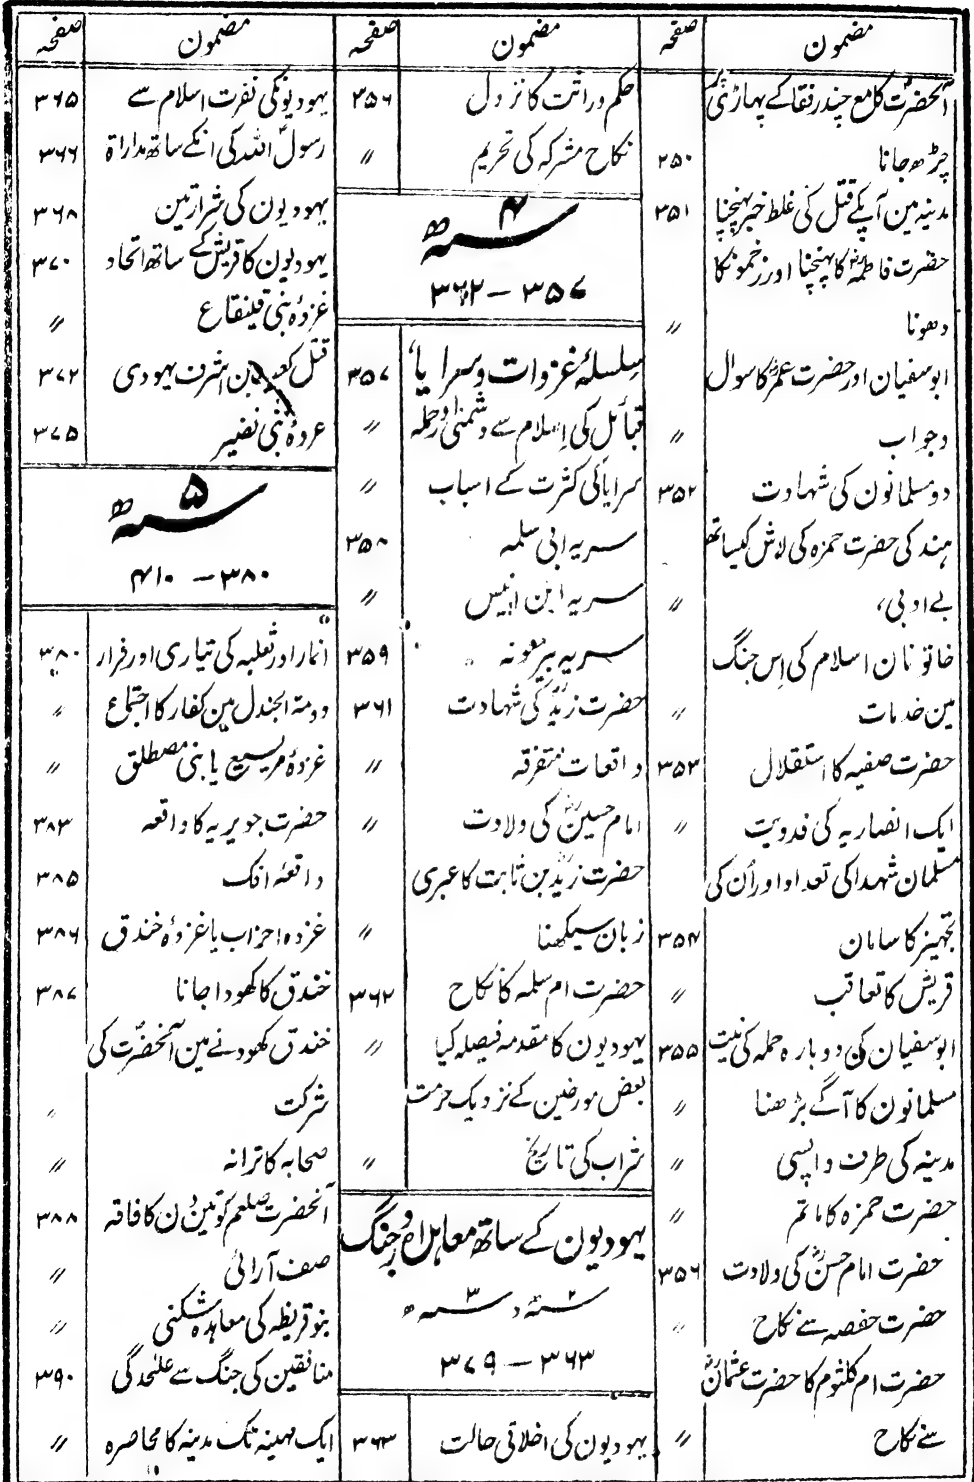 مضمون صفحہ
آنحضرتؐ کا مع چند رفقا کے پہاڑی پر
چڑھ جانا ۲۵۰
مدینہ مین آپکے قتل کی غلط خبر پہنچنا ۳۵۱
حضرت فاطمہؓ کا پہنچنا اور زخمونکا
دھونا 〃
ابوسفیان اور حضرت عمرؓ کا سوال
وجواب 〃
دو مسلمانون کی شہادت ۳۵۲
ہند کی حضرت حمزہ کی لاش کیساتھ
بے ادبی، 〃
خاتونان اسلام کی اِس جنگ
مین خدمات 〃
حضرت صفیہ کا استقلال ۳۵۳
ایک انصاریہ کی فدویت 〃
مسلمان شہدا کی تعداد اور اُن کی
تجہیز کا سامان ۳۵۴
قریش کا تعاقب 〃
ابوسفیان کی دوبارہ حملہ کی نیت ۳۵۵
مسلمانون کا آگے بڑھنا 〃
مدینہ کی طرف واپسی 〃
حضرت حمزہ کا ماتم 〃
حضرت امام حسنؓ کی ولادت ۳۵۶
حضرت حفصہ سے نکاح 〃
حضرت ام کلثوم کا حضرت عثمانؓ
سے نکاح 〃
مضمون صفحہ
حکم وراثت کا نزول ۳۵۶
نکاح مشرکہ کی تحریم 〃
سنہ ۴ ھ
۳۵۷ – ۳۶۲
سلسلۂ غزوات وسرایا، ۳۵۷
قبائل کی اسلام سے دشمنی اور حملہ 〃
سرایا کی کثرت کے اسباب 〃
سریہ ابی سلمہ ۳۵۸
سریہ ابن انیس 〃
سریہ بیر معونہ ۳۵۹
حضرت زیدؓ کی شہادت ۳۶۱
واقعات متفرقہ 〃
امام حسینؓ کی ولادت 〃
حضرت زیدؓ بن ثابت کا عبری
زبان سیکھنا 〃
حضرت ام سلمہ کا نکاح ۳۶۲
یہودیون کا مقدمہ فیصلہ کیا 〃
بعض مورخین کے نزدیک حرمت
شراب کی تاریخ 〃
یہودیون کے ساتھ معاہدہ اور جنگ
سنہ ۲ و سنہ ۳ ھ
۳۶۳ – ۳۷۹
یہودیون کی اخلاقی حالت ۳۶۳
مضمون صفحہ
یہودیونکی نفرت اسلام سے ۳۶۵
رسولؐ اللہ کی انکے ساتھ مداراۃ ۳۶۶
یہودیون کی شرارتین ۳۶۸
یہودیون کا قریش کے ساتھ اتحاد ۳۷۰
غزوۂ بنی قینقاع 〃
قتل کعب بن اشرف یہودی ۳۷۲
غزوۂ بنی نضیر ۳۷۵
سنہ ۵ ھ
۳۸۰ – ۴۱۰
انمار اور ثعلبہ کی تیاری اور فرار ۳۸۰
دومۃ الجندل مین کفار کا اجتماع 〃
غزوۂ مریسیع یا بنی مصطلق 〃
حضرت جویریہ کا واقعہ ۳۸۳
واقعۂ افک ۳۸۵
غزوہ احزاب یا غزوۂ خندق ۳۸۶
خندق کا کھودا جانا ۳۸۷
خندق کھودنے مین آنحضرتؐ کی
شرکت 〃
صحابہ کا ترانہ 〃
آنحضرت صلعم کو تین دن کا فاقہ ۳۸۸
صف آرائی 〃
بنو قریظہ کی معاہدہ شکنی 〃
منافقین کی جنگ سے علٰحدگی ۳۹۰
ایک مہینہ تک مدینہ کا محاصرہ 〃